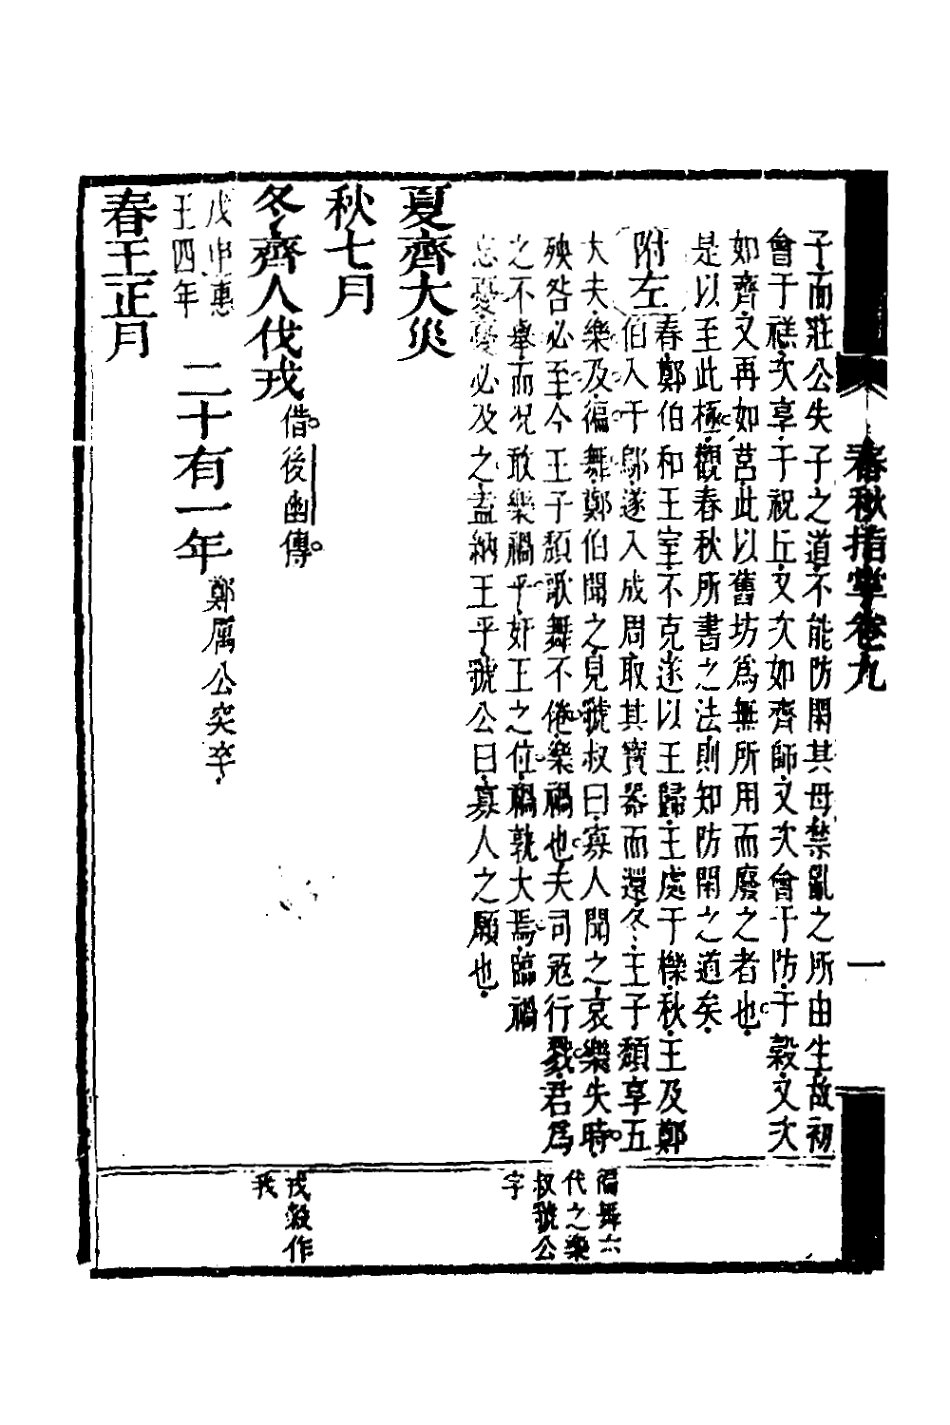 春秋指掌卷九
一
子而莊公失子之道不能防閑其母禁亂之所由生故初
會于禚次享于祝丘又次如齊師又次會于防于穀又次
如齊又再如莒此以舊坊為無所用而廢之者也
是以至此極觀春秋所書之法則知防閑之道矣
附左
春鄭伯和王室不克遂以王歸王處于櫟秋王及鄭
伯入于鄔遂入成周取其寶器而還冬王子頹享五
大夫樂及徧舞鄭伯聞之見虢叔曰寡人聞之哀樂失時
殃咎必至今王子頹歌舞不倦樂禍也夫司寇行戮君為
之不舉而况敢樂禍乎奸王之位禍孰大焉臨禍
忘憂憂必及之盍納王乎虢公曰寡人之願也
夏齊大災
秋七月
冬齊人伐戎借後幽傳
戊申惠
王四年
二十有一年鄭厲公突卒
春王正月
徧舞六
代之樂
叔虢公
字
戎穀作
我